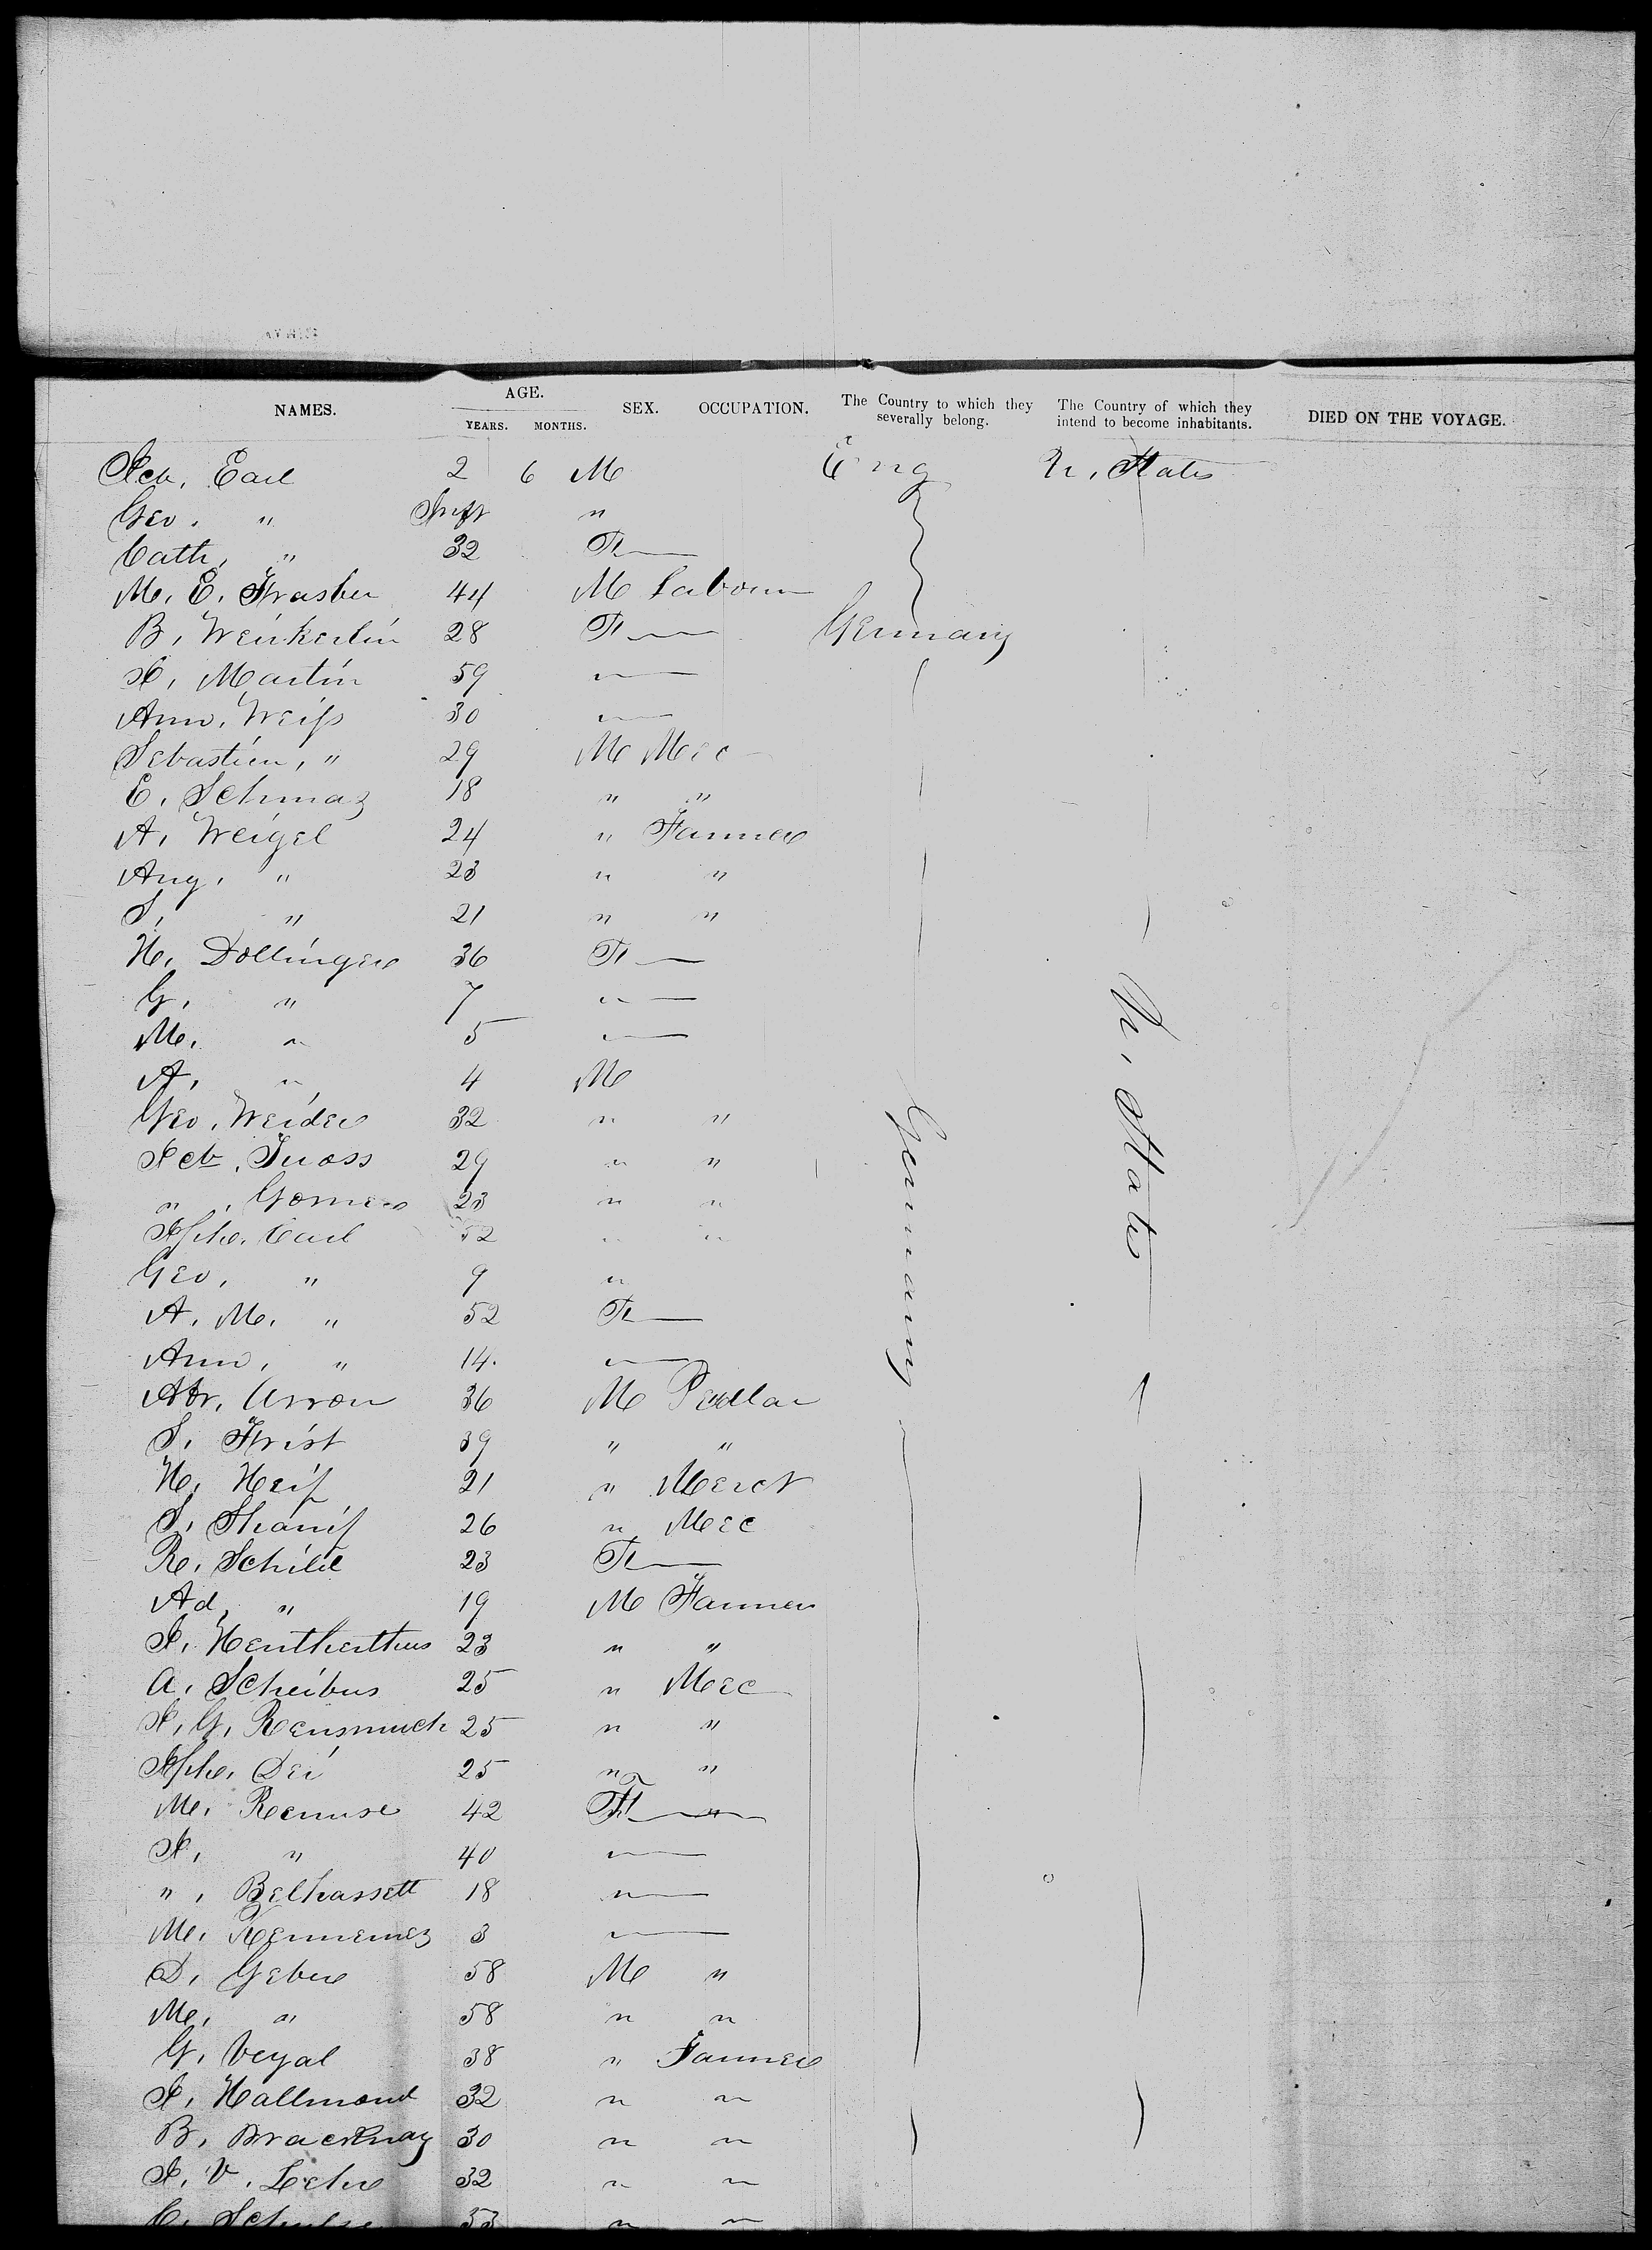 NAMES. AGE. YEARS. MONTHS. SEX. OCCUPATION. The Country to which they severally belong. The Country of which they intend to become inhabitants. DIED ON THE VOYAGE.
Jcb, Earl 2 6 M Eng U, States
Geo. " Inft "
Cath, " 32 F
M, E, Frasber 44 M Labour
B, Weinkerlin 28 F Germany
J, Martin 59 "
Ann, Weiss 30 "
Sebastien, " 29 M Mec
E, Schmaz 18 " "
A, Weigel 24 " Farmer
Aug, " 23 " "
S, " 21 " "
H, Dollinger 36 F
G, " 7 "
M, " 5 "
A, " 4 M
Geo, Weider 32 " "
Jcb, 29 " "
" , 23 " "
Jph, Carl 52 " "
Geo, " 9 "
A, M, " 52 F
Ann, " 14. "
Abr, Arron 36 M Pedlar
S, Frist 39 " "
H, 21 " Merct
S, 26 " Mec
R, Schild 23 F
Ad, " 19 M Farmer
J, 23 " "
A, Scheibus 25 " Mec
J, G, Rensmuch 25 " "
Jph, Dei 25 " "
M, 42 F "
J, " 40 "
" , Belhassett 18 "
M, 3 "
D, Geber 58 M "
M, " 58 " "
G, Veyal 38 " Farmer
J, Hallmond 32 " "
B, 30 " "
J, V, Lehr 32 " "
C, 33 " "
Germany
U, States